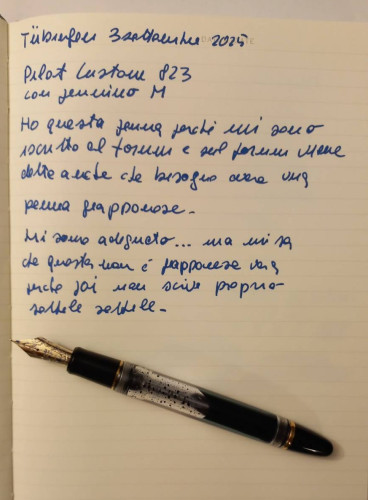 Tübingen 3 settembre 2025
Pilot Custom 823
con pennino M
Ho questa penna perché mi sono
iscritto al forum e sul forum viene
detto anche che bisogna avere una
penna giapponese.
Mi sono adeguato... ma mi sa
che questa non è giapponese vera
perché poi non scrive proprio
sottile sottile.